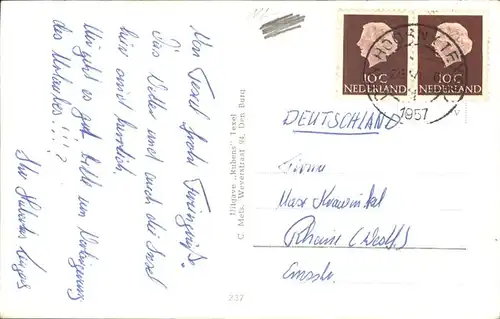 Von Texel frohe Feriengrüße.
Das Wetter und auch die Insel
hier sind herrlich.
Mir geht es gut, bitte um Verlängerung
des Urlaubes...!!?
Ihr Hubertus
Uitgave „Rubens" Texel
C. Mets. Weverstraat 94, Den Burg
237
10c
NEDERLAND
10c
NEDERLAND
1957
DEUTSCHLAND
Firma
Max Krawinkel
Rheine (Westf)
Emsstr.